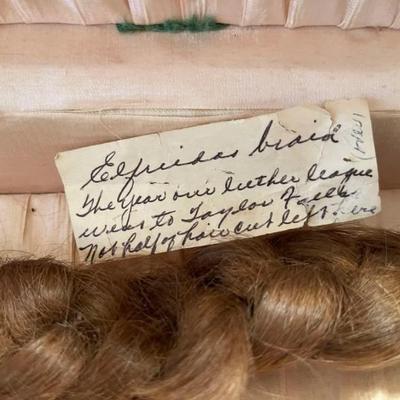 Elfriedas braid
The year our luther league
went to Taylor Falls
Not half of hair cut left here